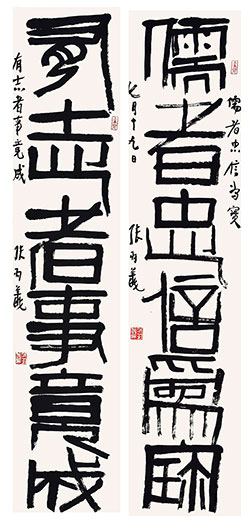 儒者忠信為珤
儒者忠信為寶
七月十九日
張
有志者事竟成
有志者事竟成
張